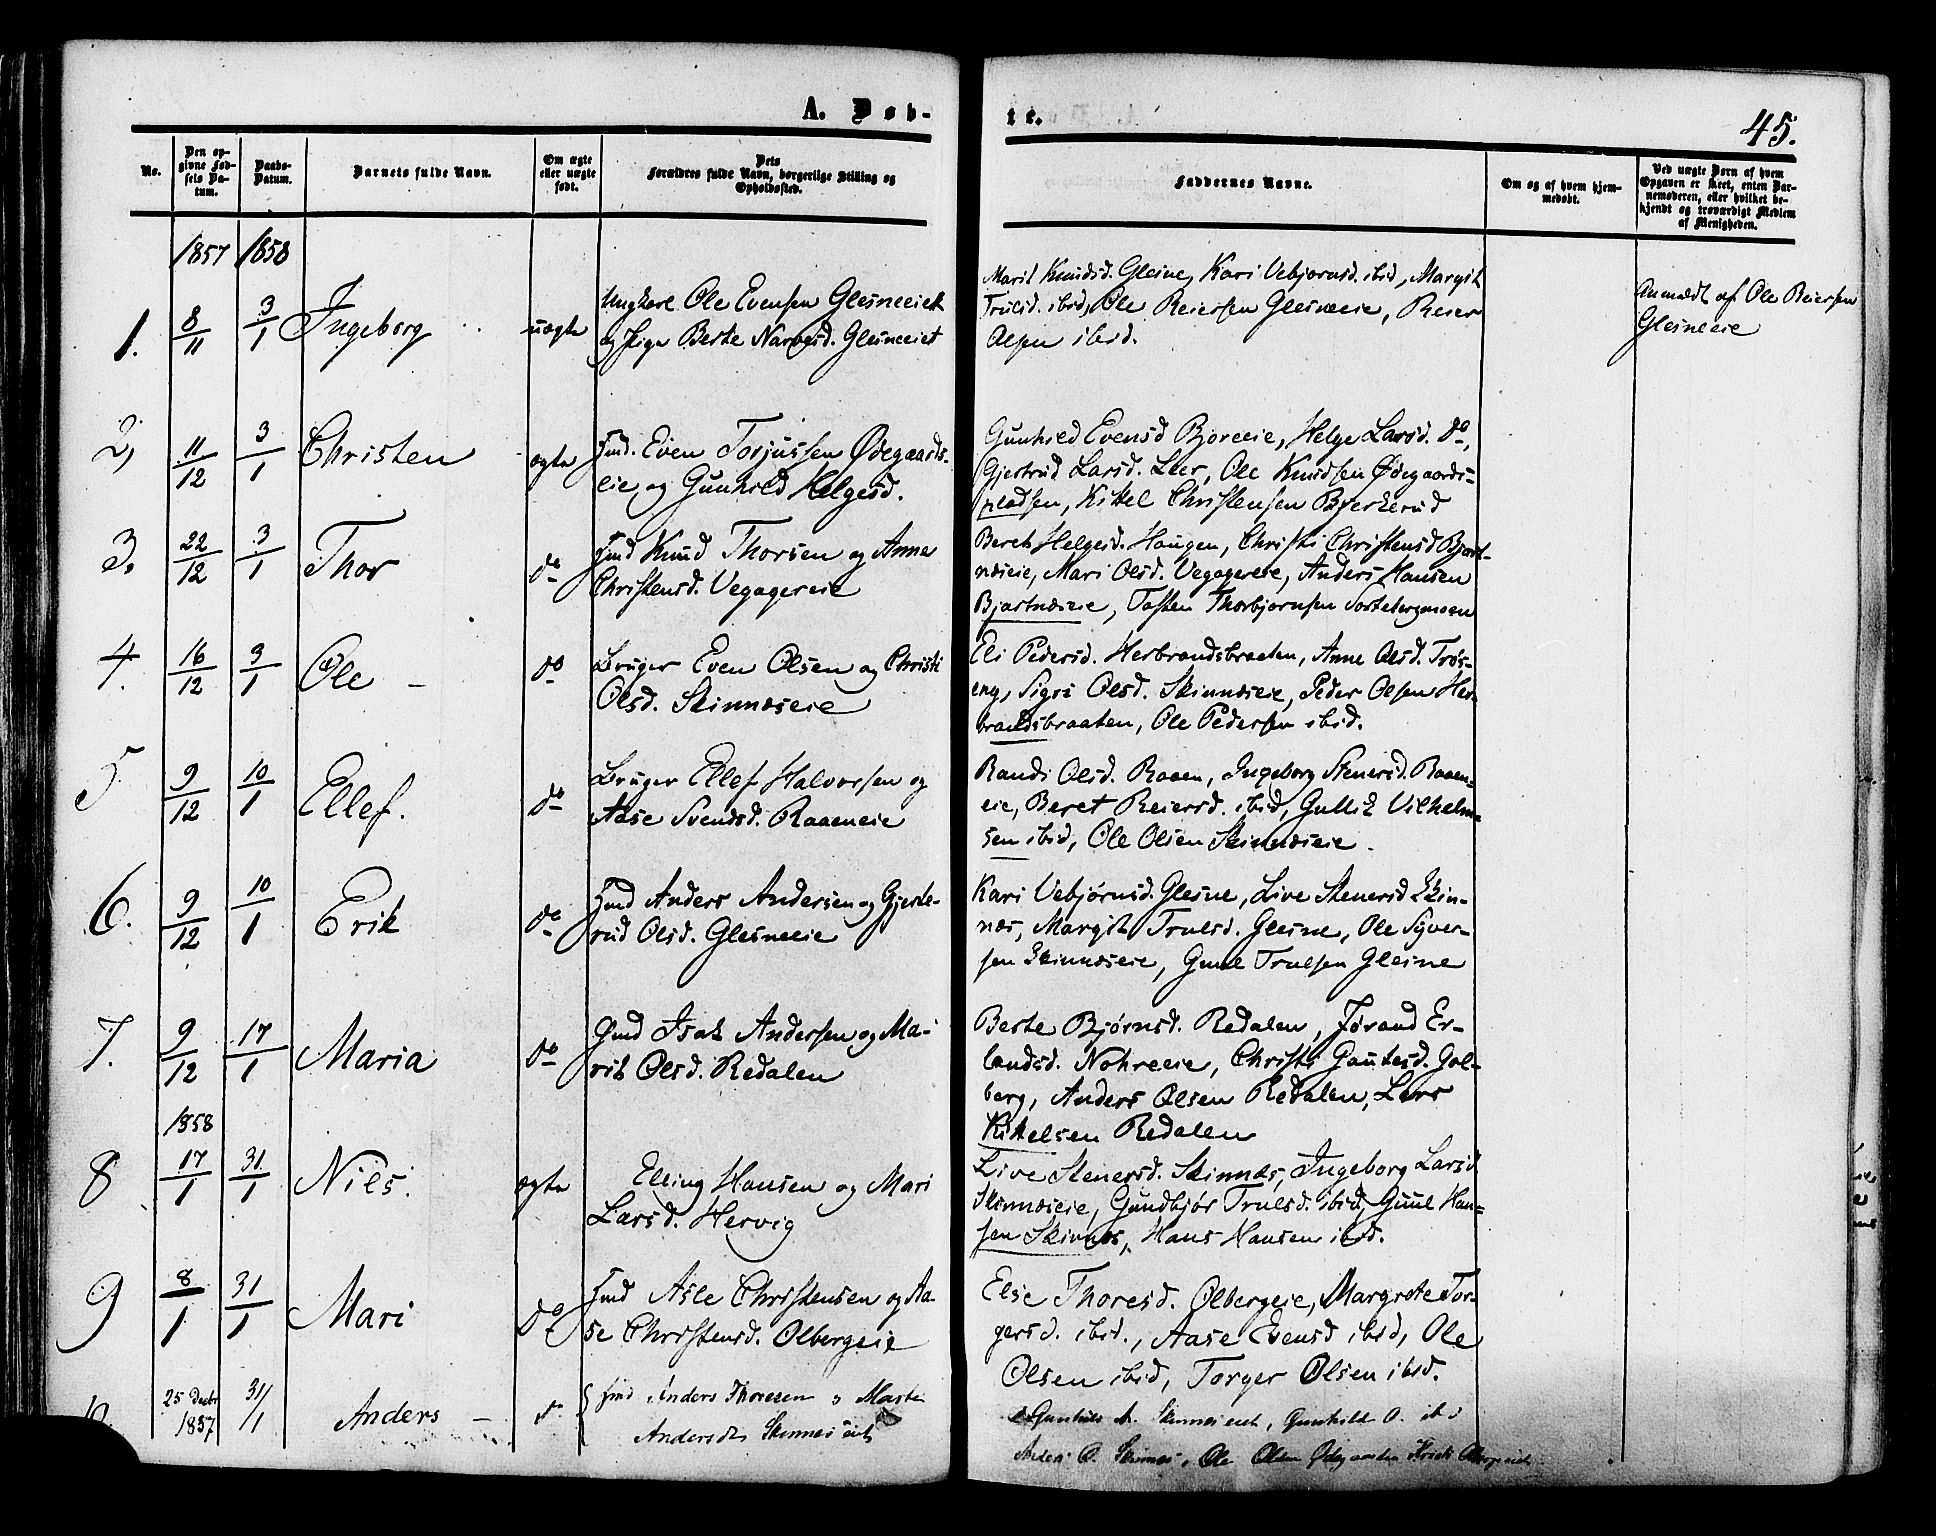 A. Døb-
te.
45.
No.
Den op-
givne Fød-
sels Da-
tum.
Daabs-
Datum.
Barnets fulde Navn.
Om ægte
eller uægte
født.
Dets
Forældres fulde Navn, borgerlige Stilling og
Opholdssted.
Faddernes Navne.
Om og af hvem hjem-
medøbt.
Ved uægte Børn af hvem
Opgaven er skeet, enten Bar-
nemoderen, eller hvilket be-
kjendt og troværdigt Medlem
af Menigheden.
1857 1858
1. 8/11 3/1 Ingeborg uægte
Ungkarl Ole Evensen Glesneeiet
og Pige Berte Narvesd. Glesneeiet
Marit Knudsd. Glesne, Kari Vebjørnsd. ibid, Margit
Trulsd. ibid, Ole Reiersen Glesneeie, Reier
Olsen ibid.
Anmeldt af Ole Reiersen
Glesneeie
2, 11/12 3/1 Christen ægte
Hmd. Even Torjussen Ødegaards-
eie og Gunhild Helgesd.
Gunhild Evensd Bjøreeie, Helge Larsd. do,
Gjertrud Larsd. Leer, Ole Knudsen Ødegaards-
pladsen, Kittel Christensen Bjerkerud
3. 22/12 3/1 Thor do
Hmd Knud Thorsen og Anne
Christensd. Vegagereie
Beret Helgesd. Haugen, Christi Christensd Bjert-
næseie, Mari Olsd. Vegagereie, Anders Hansen
Bjertnæseie, Tosten Thorbjørnsen Sortebergmoen
4. 16/12 3/1 Ole - do
Bruger Even Olsen og Christi
Olsd. Skinnæseie
Eli Pedersd. Herbrandsbraaten, Anne Olsd. Trøs-
eng, Sigri Olsd. Skinnæseie, Peder Olsen Her-
brandsbraaten, Ole Pedersen ibid.
5. 9/12 10/1 Ellef. do
Bruger Ellef Halvorsen og
Aase Svendsd. Raaeneie
Randi Olsd. Raaen, Ingeborg Stenersd. Raaen-
eie, Beret Reiersd. ibid, Gullik Vilhelm-
sen ibid, Ole Olsen Skinnæseie.
6. 9/12 10/1 Erik do
Hmd Anders Andersen og Gjerte-
rud Olsd. Glesneeie
Kari Vebjørnsd. Glesne, Live Stenersd Skin-
næs, Margit Trulsd. Glesne, Ole Syver-
sen Skinnæseie, Guul Trulsen Glesne
7. 9/12 17/1 Maria do
Gmd Isak Andersen og Ma-
rit Olsd. Redalen
Berte Bjørnsd. Redalen, Jørand Er-
landsd. Nohreeie, Christi Gautesd. Gol-
berg, Anders Olsen Redalen, Lars
Kittelsen Redalen
1858
8 17/1 31/1 Nils. ægte
Elling Hansen og Mari
Larsd. Hervig
Live Stenersd. Skinnæs, Ingeborg Larsd.
Skinnæseie, Gundbjør Trulsd. ibid, Guul Han-
sen Skinnæs, Hans Hansen ibid.
9 8/1 31/1 Mari do
Hmd Asle Christensen og Aa-
se Christensd. Olbergeie
Else Thoresd. Olbergeie, Margrete Tor-
gersd. ibid., Aase Evensd ibid, Ole
Olsen ibid, Torger Olsen ibid.
25 Decbr 1857 31/1 Anders - do
Hmd Anders Thoresen o Marte
Andersdt Skinnes eiet
Gunhild A. Skinnes eiet, Gunhild O. ibid
Anders O. Skinnes, Ole Olsen Ødegaarden